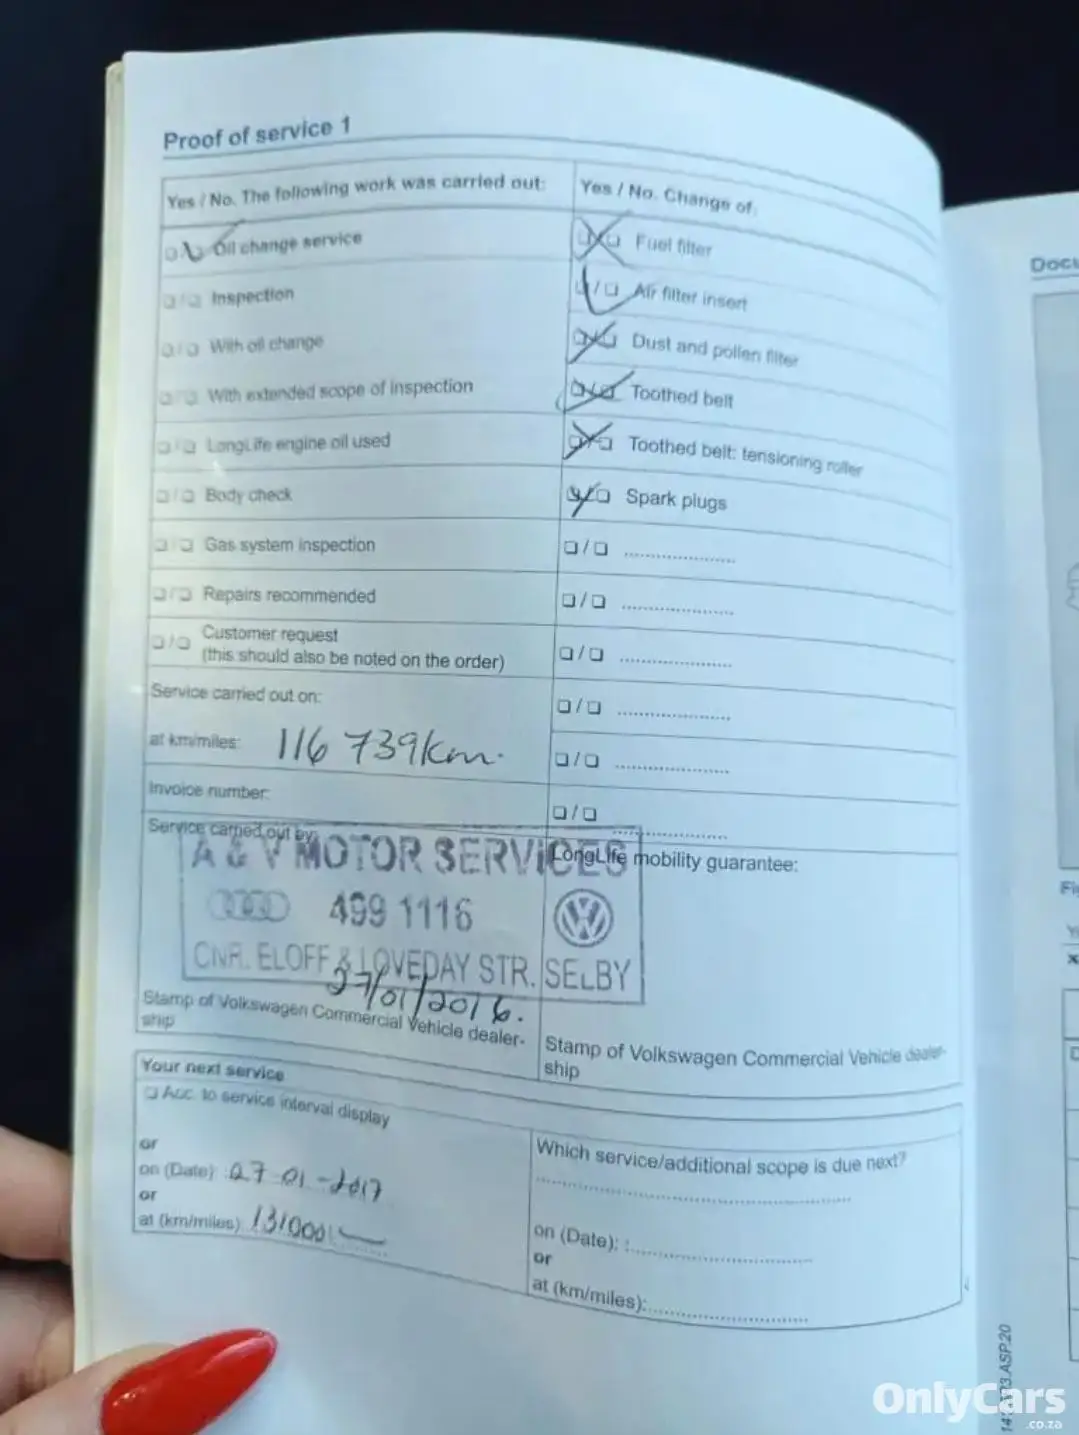 Proof of service 1
Yes / No. The following work was carried out:
❏ / ❏ Oil change service
❏ / ❏ Inspection
❏ / ❏ With oil change
❏ / ❏ With extended scope of inspection
❏ / ❏ LongLife engine oil used
❏ / ❏ Body check
❏ / ❏ Gas system inspection
❏ / ❏ Repairs recommended
❏ / ❏ Customer request
(this should also be noted on the order)
Service carried out on:
at km/miles: 116 739km.
Invoice number:
Service carried out by:
A & V MOTOR SERVICES
499 1116
CNR. ELOFF & LOVEDAY STR. SELBY
27/01/2016.
Stamp of Volkswagen Commercial Vehicle dealer-
ship
Yes / No. Change of:
❏ / ❏ Fuel filter
❏ / ❏ Air filter insert
❏ / ❏ Dust and pollen filter
❏ / ❏ Toothed belt
❏ / ❏ Toothed belt: tensioning roller
❏ / ❏ Spark plugs
❏ / ❏ ....................
❏ / ❏ ....................
❏ / ❏ ....................
❏ / ❏ ....................
❏ / ❏ ....................
❏ / ❏ ....................
LongLife mobility guarantee:
Stamp of Volkswagen Commercial Vehicle dealer-
ship
Your next service
❏ Acc. to service interval display
or
on (Date): 27-01-2017
or
at (km/miles): 131000
Which service/additional scope is due next?
on (Date): :....................
or
at (km/miles):....................
Docu
OnlyCars
.co.za